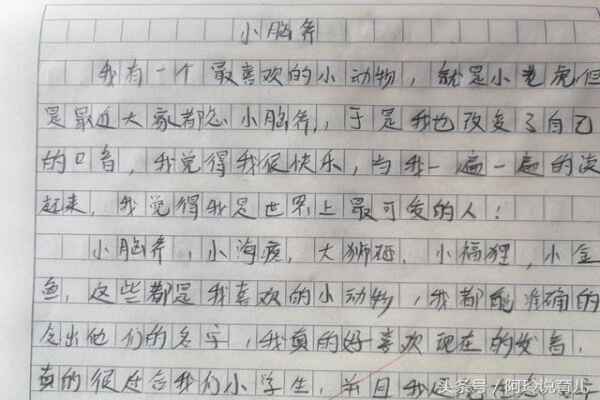 小脑斧
我有一个最喜欢的小动物，就是小老虎，但
是最近大家都念小脑斧，于是我也改变了自己
的口音，我觉得我很快乐，当我一遍一遍的读
起来，我觉得我是世界上最可爱的人！
小脑斧，小海疲，大狮纸，小福狸，小金
鱼，这些都是我喜欢的小动物，我都能准确的
念出他们的名字，我真的好喜欢现在的发音，
真的很适合我们小学生，并且我
头条号／阿玲说育儿